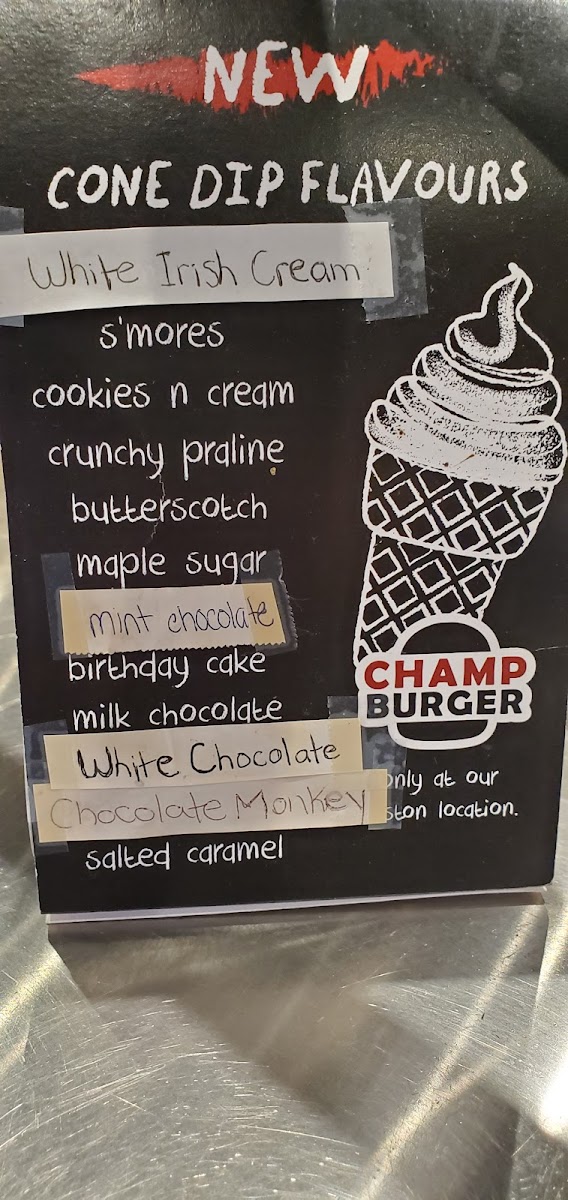 NEW
CONE DIP FLAVOURS
White Irish Cream
s'mores
cookies n cream
crunchy praline
butterscotch
maple sugar
mint chocolate
birthday cake
milk chocolate
White Chocolate
Chocolate Monkey
salted caramel
CHAMP
BURGER
only at our
location.